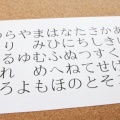 らやまはなたさかあ
り みひにちしきい
るゆむふぬつすくう
れ めへねてせけ
ろよもほのとそ